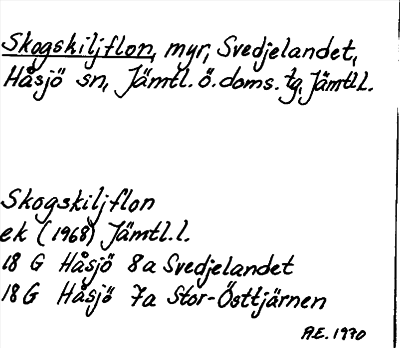 Skogskiljflon, myr, Svedjelandet,
Håsjö sn, Jämtl. ö. doms. tg, Jämtl l.
Skogskiljflon
ek (1968) Jämtl. l.
18 G Håsjö 8a Svedjelandet
18 G Håsjö 7a Stor-Östtjärnen
A.E. 1970